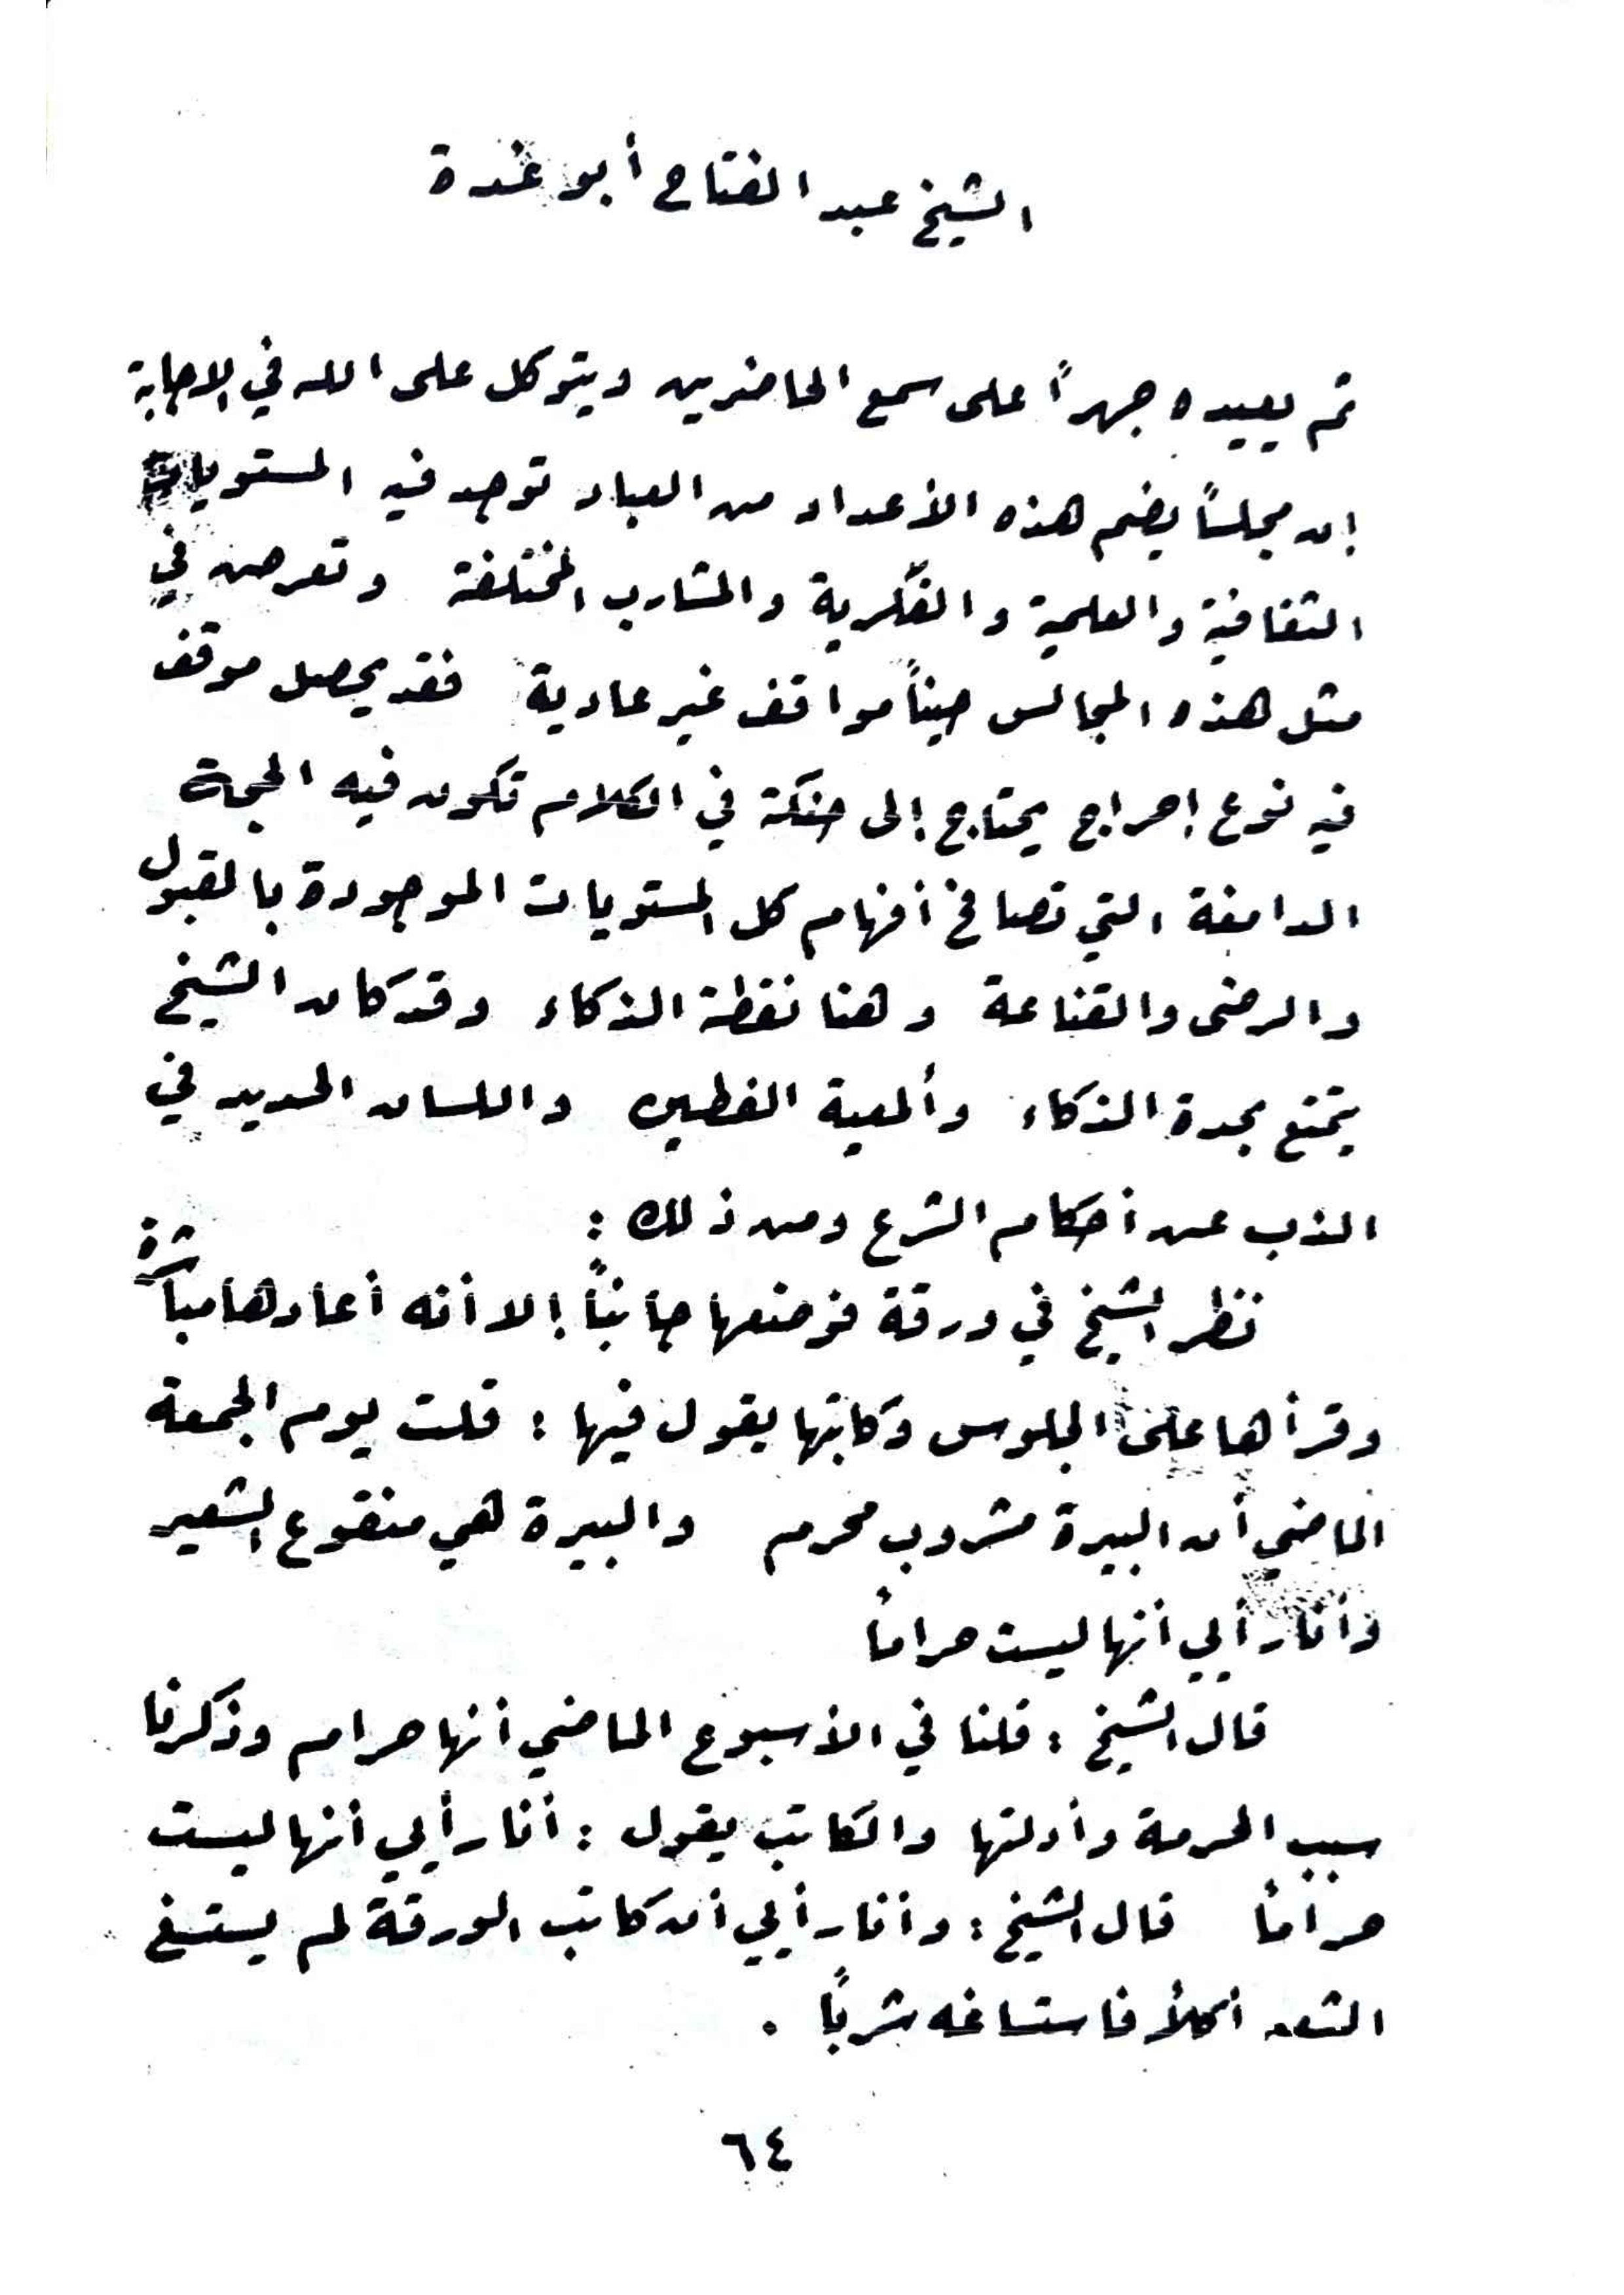 الشيخ عبد الفتاح أبو غدة
ثم يعيده جهراً على سمع الحاضرين ويتوكل على الله في الإجابة
إن مجلساً يضم هذه الأعداد من العباد توجد فيه المستويات
الثقافية والعلمية والفكرية والمشارب المختلفة وتعرض في
مثل هذه المجالس حيناً مواقف غير عادية فقد يحصل موقف
فيه نوع إحراج يحتاج إلى حنكة في الكلام تكون فيه الحجة
الدامغة التي تصافح أفهام كل المستويات الموجودة بالقبول
والرضى والقناعة وهنا نقطة الذكاء وقد كان الشيخ
يتمتع بحدة الذكاء وألمعية الفطين واللسان الحديد في
الذب عن أحكام الشرع ومن ذلك :
نظر الشيخ في ورقة فوضعها جانباً إلا أنه أعادها مباشرة
وقرأها على الجلوس وكاتبها يقول فيها : قلت يوم الجمعة
الماضي أن البيرة مشروب محرم والبيرة هي منقوع الشعير
وأنا رأيي أنها ليست حراماً
قال الشيخ : قلنا في الأسبوع الماضي أنها حرام وذكرنا
سبب الحرمة وأدلتها والكاتب يقول : أنا رأيي أنها ليست
حراماً قال الشيخ : وأنا رأيي أن كاتب الورقة لم يستسغ
أكلاً فاستساغه شرباً .
٦٤